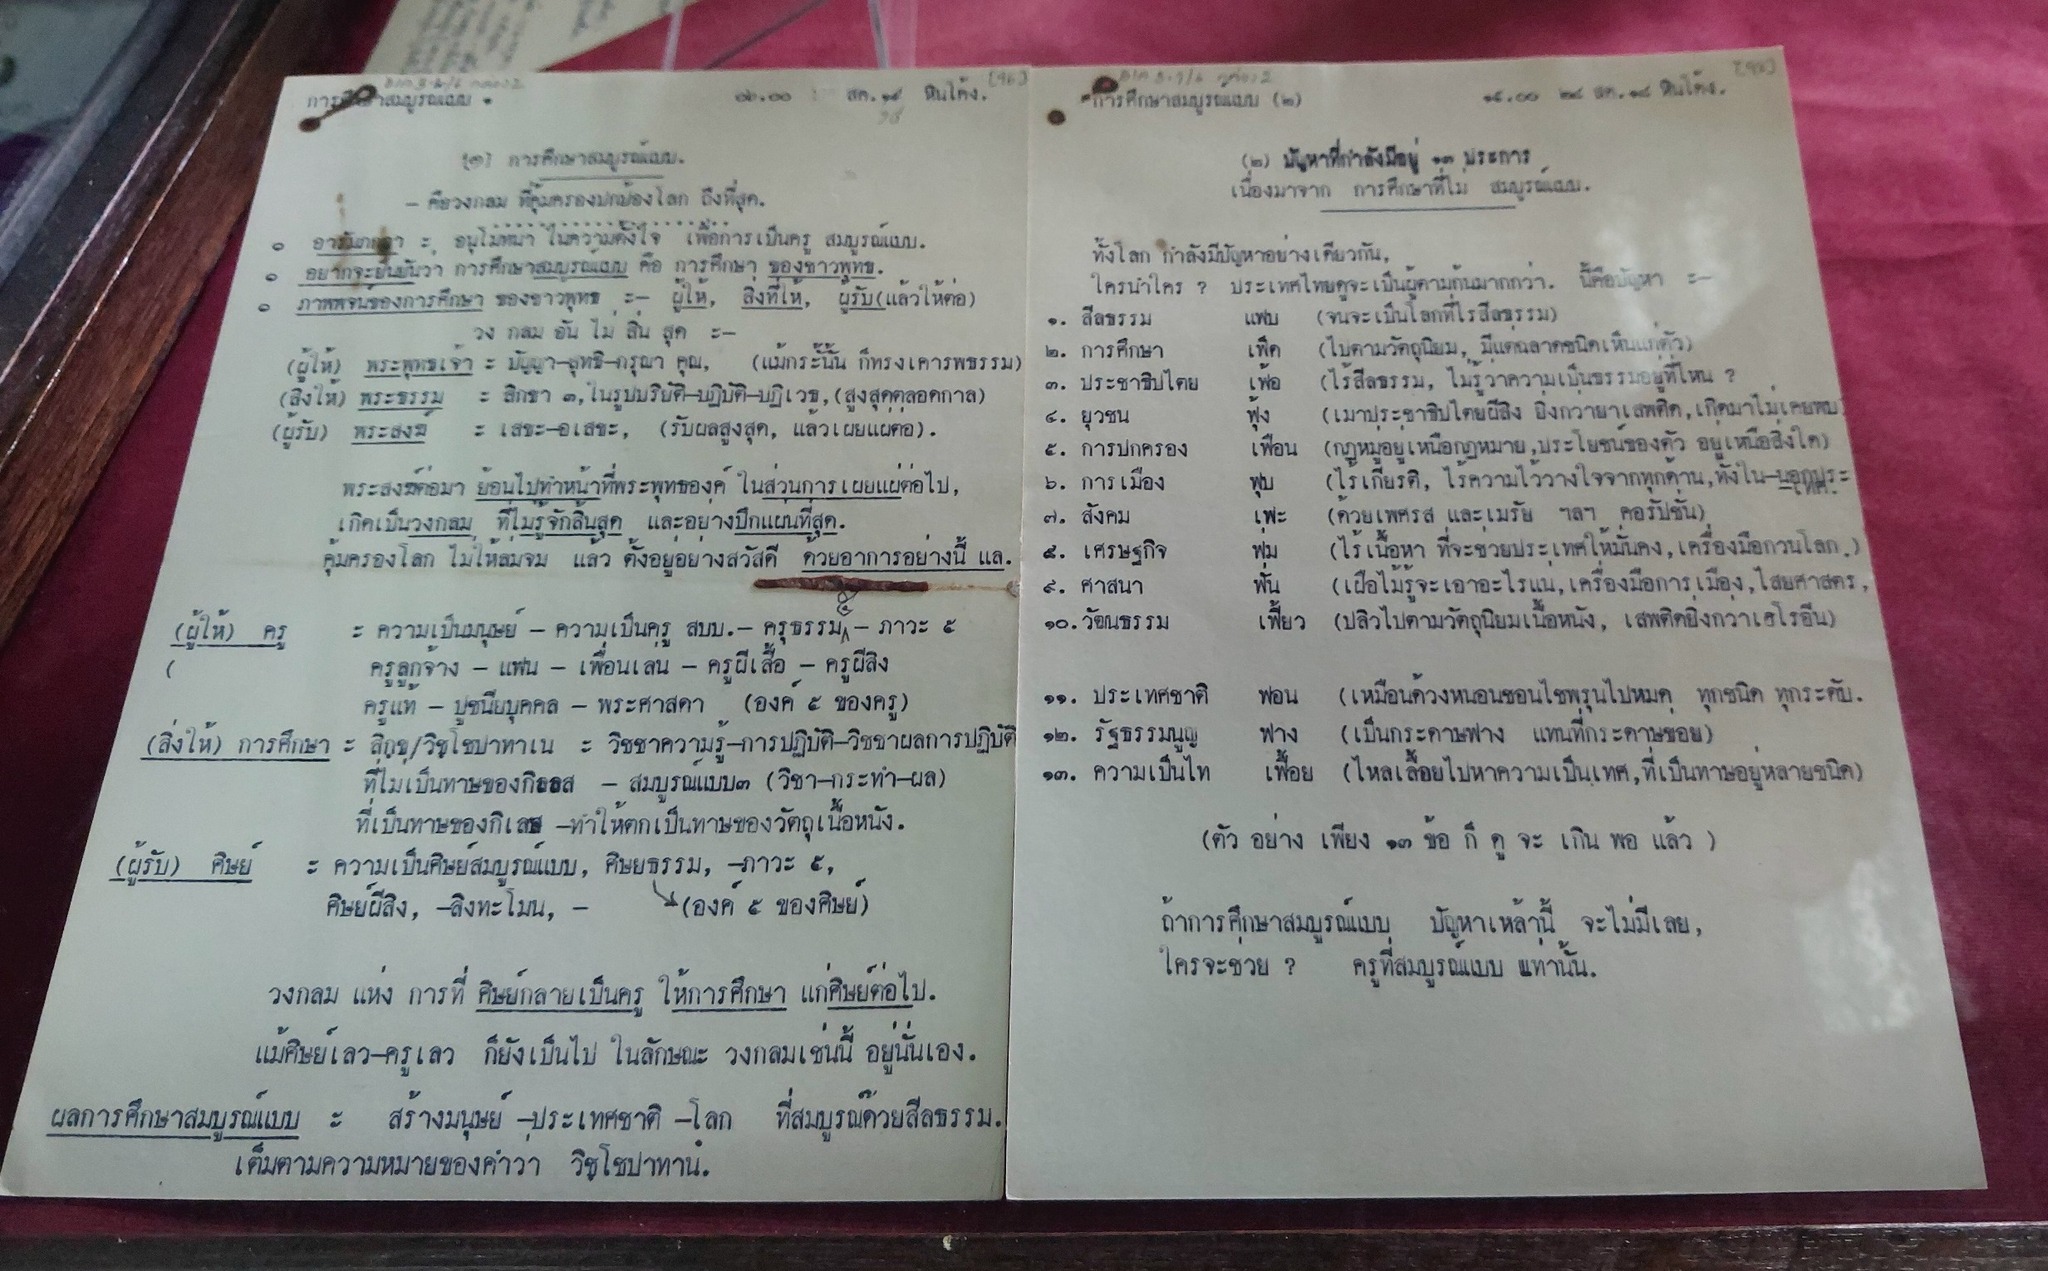 การศึกษาสมบูรณ์แบบ ๑ ๐๖.๐๐ สค.๑๘ หินโค้ง.
(๑) การศึกษาสมบูรณ์แบบ.
– คือวงกลม ที่คุ้มครองปกป้องโลก ถึงที่สุด.
๐ อารัมภกถา ะ อนุโมทนา ในความตั้งใจ เพื่อการเป็นครู สมบูรณ์แบบ.
๐ อยากจะยืนยันว่า การศึกษาสมบูรณ์แบบ คือ การศึกษา ของชาวพุทธ.
๐ ภาพพจน์ของการศึกษา ของชาวพุทธ ะ– ผู้ให้, สิ่งที่ให้, ผู้รับ(แล้วให้ต่อ)
วง กลม อัน ไม่ สิ้น สุด ะ–
(ผู้ให้) พระพุทธเจ้า ะ ปัญญา–สุทธิ–กรุณา คุณ, (แม้กระนั้น ก็ทรงเคารพธรรม)
(สิ่งให้) พระธรรม ะ สิกขา ๓, ในรูปปริยัติ–ปฏิบัติ–ปฏิเวธ, (สูงสุดตลอดกาล)
(ผู้รับ) พระสงฆ์ ะ เสขะ–อเสขะ, (รับผลสูงสุด, แล้วเผยแผ่ต่อ).
พระสงฆ์ต่อมา ย้อนไปทำหน้าที่พระพุทธองค์ ในส่วนการเผยแผ่ต่อไป,
เกิดเป็นวงกลม ที่ไม่รู้จักสิ้นสุด และอย่างปึกแผ่นที่สุด.
คุ้มครองโลก ไม่ให้ล่มจม แล้ว ตั้งอยู่อย่างสวัสดี ด้วยอาการอย่างนี้ แล.
(ผู้ให้) ครู ะ ความเป็นมนุษย์ – ความเป็นครู สบบ.– ครุธรรม ๕ – ภาวะ ๕
( ครูลูกจ้าง – แฟน – เพื่อนเล่น – ครูผีเสื้อ – ครูผีสิง
ครูแท้ – ปูชนียบุคคล – พระศาสดา (องค์ ๕ ของครู)
(สิ่งให้) การศึกษา ะ สิกฺข/วิชฺโชปาทาเน ะ วิชชาความรู้–การปฏิบัติ–วิชชาผลการปฏิบัติ
ที่ไม่เป็นทาษของกิเลส – สมบูรณ์แบบ๓ (วิชา–กระทำ–ผล)
ที่เป็นทาษของกิเลส –ทำให้ตกเป็นทาษของวัตถุเนื้อหนัง.
(ผู้รับ) ศิษย์ ะ ความเป็นศิษย์สมบูรณ์แบบ, ศิษยธรรม, –ภาวะ ๕,
ศิษย์ผีสิง, –สิงทะโมน, – (องค์ ๕ ของศิษย์)
วงกลม แห่ง การที่ ศิษย์กลายเป็นครู ให้การศึกษา แก่ศิษย์ต่อไป.
แม้ศิษย์เลว–ครูเลว ก็ยังเป็นไป ในลักษณะ วงกลมเช่นนี้ อยู่นั่นเอง.
ผลการศึกษาสมบูรณ์แบบ ะ สร้างมนุษย์ –ประเทศชาติ –โลก ที่สมบูรณ์ด้วยสีลธรรม.
เต็มตามความหมายของคำว่า วิชฺโชปาทานํ.
การศึกษาสมบูรณ์แบบ (๒) ๑๕.๐๐ ๒๔ สค.๑๘ หินโค้ง.
(๒) ปัญหาที่กำลังมีอยู่ ๑๓ ประการ
เนื่องมาจาก การศึกษาที่ไม่ สมบูรณ์แบบ.
ทั้งโลก กำลังมีปัญหาอย่างเดียวกัน,
ใครนำใคร ? ประเทศไทยดูจะเป็นผู้ตามก้นมากกว่า. นี้คือปัญหา ะ–
๑. สีลธรรม แฟบ (จนจะเป็นโลกที่ไร้สีลธรรม)
๒. การศึกษา เฟ็ค (ไปตามวัตถุนิยม, มีแต่ฉลาดชนิดเห็นแก่ตัว)
๓. ประชาธิปไตย เฟ้อ (ไร้สีลธรรม, ไม่รู้ว่าความเป็นธรรมอยู่ที่ไหน ?
๔. ยุวชน ฟุ้ง (เมาประชาธิปไตยผีสิง ยิ่งกว่ายาเสพติด, เกิดมาไม่เคยพบ)
๕. การปกครอง เฟือน (กฎหมู่อยู่เหนือกฎหมาย, ประโยชน์ของตัว อยู่เหนือสิ่งใด)
๖. การเมือง ฟุบ (ไร้เกียรติ, ไร้ความไว้วางใจจากทุกด้าน, ทั้งใน–นอกประ–
เทศ.
๗. สังคม เฟะ (ด้วยเพศรส และเมรัย ฯลฯ คอรัปชั่น)
๘. เศรษฐกิจ ฟุ่ม (ไร้เนื้อหา ที่จะช่วยประเทศให้มั่นคง, เครื่องมือกวนโลก.)
๙. ศาสนา ฟั่น (เฝือไม่รู้จะเอาอะไรแน่, เครื่องมือการเมือง, ไสยศาสตร,
๑๐. วัฒนธรรม เฟี้ยว (ปลิวไปตามวัตถุนิยมเนื้อหนัง, เสพติดยิ่งกว่าเฮโรอีน)
๑๑. ประเทศชาติ ฟอน (เหมือนด้วงหนอนชอนไชพรุนไปหมด ทุกชนิด ทุกระดับ.
๑๒. รัฐธรรมนูญ ฟาง (เป็นกระดาษฟาง แทนที่กระดาษข่อย)
๑๓. ความเป็นไท เฟื้อย (ไหลเลื้อยไปหาความเป็นเทศ, ที่เป็นทาษอยู่หลายชนิด)
(ตัว อย่าง เพียง ๑๓ ข้อ ก็ ดู จะ เกิน พอ แล้ว )
ถ้าการศึกษาสมบูรณ์แบบ ปัญหาเหล้านี้ จะไม่มีเลย,
ใครจะช่วย ? ครูที่สมบูรณ์แบบ เท่านั้น.